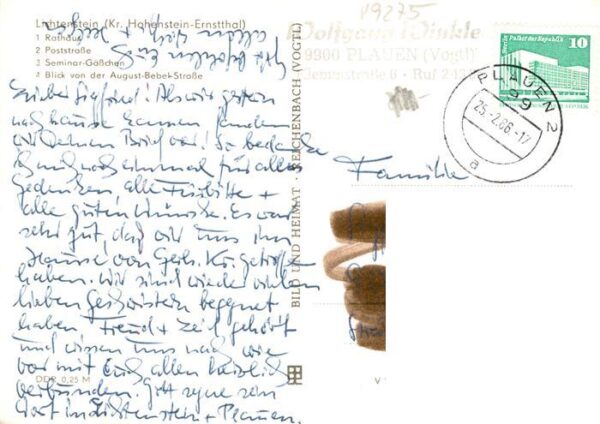 Lichtenstein (Kr. Hohenstein-Ernstthal)
1 Rathaus
2 Poststraße
3 Seminar-Gäßchen
4 Blick von der August-Bebel-Straße
Lieber Siegfried! Als wir gestern
nach hause kamen fanden
wir Deinen Brief vor! So bedanke
ich mich noch einmal für alle
Gedenken, alle Fürbitte +
alle guten Wünsche. Es war
sehr gut, daß wir uns im
Hause von Gesch. getroffen
haben. Wir sind wieder vielen
lieben Geschwistern begegnet
haben Freud + Zeit gehört
und wissen uns nach wie
vor mit Euch allen herzlich
verbunden. Gott segne sein
Wort in Lichtenstein + Plauen.
DDR 0,25 M
BILD UND HEIMAT REICHENBACH (VOGTL)
V
09275
Wolfgang Winkle
9900 PLAUEN (Vogtl)
straße 6 - Ruf
Palast der Republik
10
PLAUEN 2
99
25.-2.86.-17
a
Familie